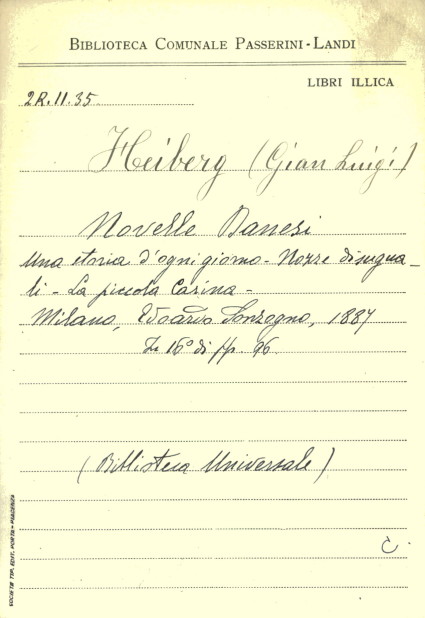 BIBLIOTECA COMUNALE PASSERINI-LANDI
LIBRI ILLICA
2R.II.35
Heiberg (Gian Luigi)
Novelle Danesi
Una storia d'ogni giorno - Nozze disegua-
li - La piccola Carina -
Milano, Edoardo Sonzogno, 1887
In 16° di pp. 96.
(Biblioteca Universale)
C
SOCIETÀ TIP. EDIT. PORTA - PIACENZA